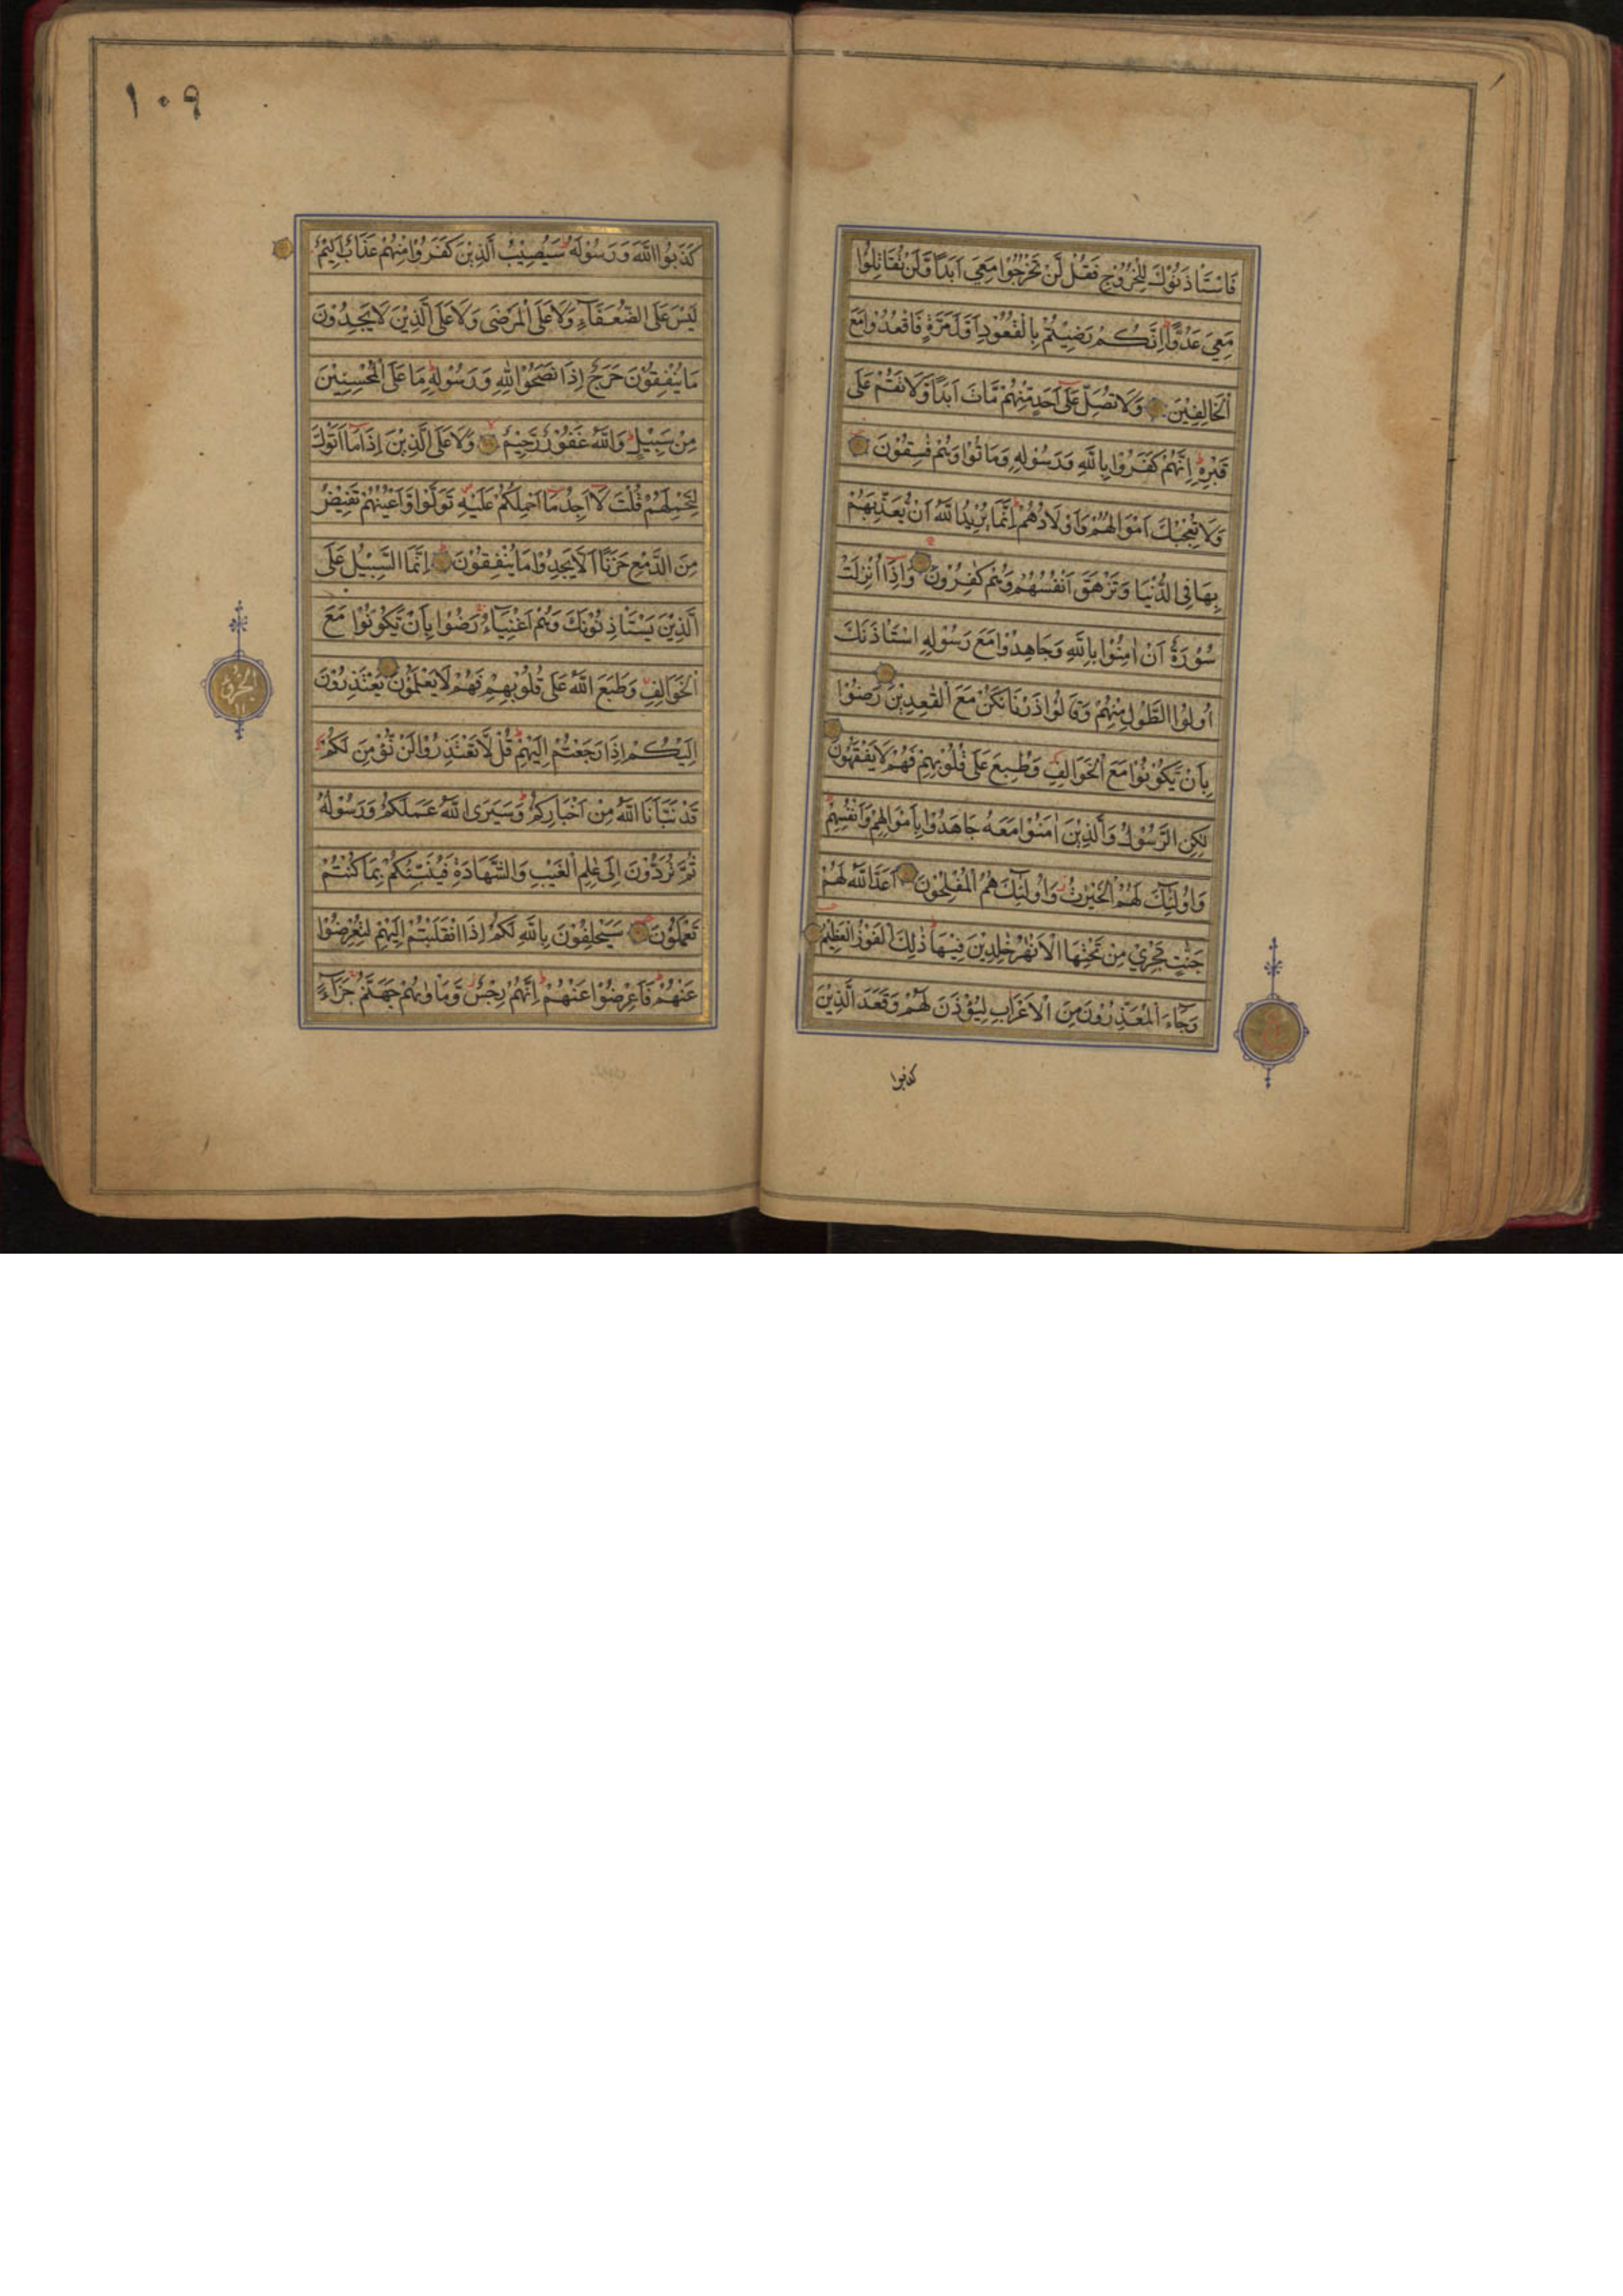 فَاسْتَأْذَنُوْكَ لِلْخُرُوْجِ فَقُلْ لَّنْ تَخْرُجُوْا مَعِيَ اَبَدًا وَّلَنْ تُقَاتِلُوْا
مَعِيَ عَدُوًّا اِنَّكُمْ رَضِيْتُمْ بِالْقُعُوْدِ اَوَّلَ مَرَّةٍ فَاقْعُدُوْا مَعَ
الْخَالِفِيْنَ وَلَا تُصَلِّ عَلٰٓى اَحَدٍ مِّنْهُمْ مَّاتَ اَبَدًا وَّلَا تَقُمْ عَلٰى
قَبْرِهٖ اِنَّهُمْ كَفَرُوْا بِاللّٰهِ وَرَسُوْلِهٖ وَمَاتُوْا وَهُمْ فٰسِقُوْنَ
وَلَا تُعْجِبْكَ اَمْوَالُهُمْ وَاَوْلَادُهُمْ اِنَّمَا يُرِيْدُ اللّٰهُ اَنْ يُّعَذِّبَهُمْ
بِهَا فِى الدُّنْيَا وَتَزْهَقَ اَنْفُسُهُمْ وَهُمْ كٰفِرُوْنَ وَاِذَآ اُنْزِلَتْ
سُوْرَةٌ اَنْ اٰمِنُوْا بِاللّٰهِ وَجَاهِدُوْا مَعَ رَسُوْلِهِ اسْتَأْذَنَكَ
اُولُوا الطَّوْلِ مِنْهُمْ وَقَالُوْا ذَرْنَا نَكُنْ مَّعَ الْقٰعِدِيْنَ رَضُوْا
بِاَنْ يَّكُوْنُوْا مَعَ الْخَوَالِفِ وَطُبِعَ عَلٰى قُلُوْبِهِمْ فَهُمْ لَا يَفْقَهُوْنَ
لٰكِنِ الرَّسُوْلُ وَالَّذِيْنَ اٰمَنُوْا مَعَهٗ جَاهَدُوْا بِاَمْوَالِهِمْ وَاَنْفُسِهِمْ
وَاُولٰٓئِكَ لَهُمُ الْخَيْرٰتُ وَاُولٰٓئِكَ هُمُ الْمُفْلِحُوْنَ اَعَدَّ اللّٰهُ لَهُمْ
جَنّٰتٍ تَجْرِيْ مِنْ تَحْتِهَا الْاَنْهٰرُ خٰلِدِيْنَ فِيْهَا ذٰلِكَ الْفَوْزُ الْعَظِيْمُ
وَجَآءَ الْمُعَذِّرُوْنَ مِنَ الْاَعْرَابِ لِيُؤْذَنَ لَهُمْ وَقَعَدَ الَّذِيْنَ
كذبوا
١٠٩
كَذَبُوا اللّٰهَ وَرَسُوْلَهٗ سَيُصِيْبُ الَّذِيْنَ كَفَرُوْا مِنْهُمْ عَذَابٌ اَلِيْمٌ
لَيْسَ عَلَى الضُّعَفَآءِ وَلَا عَلَى الْمَرْضٰى وَلَا عَلَى الَّذِيْنَ لَا يَجِدُوْنَ
مَا يُنْفِقُوْنَ حَرَجٌ اِذَا نَصَحُوْا لِلّٰهِ وَرَسُوْلِهٖ مَا عَلَى الْمُحْسِنِيْنَ
مِنْ سَبِيْلٍ وَاللّٰهُ غَفُوْرٌ رَّحِيْمٌ وَّلَا عَلَى الَّذِيْنَ اِذَا مَآ اَتَوْكَ
لِتَحْمِلَهُمْ قُلْتَ لَآ اَجِدُ مَآ اَحْمِلُكُمْ عَلَيْهِ تَوَلَّوْا وَّاَعْيُنُهُمْ تَفِيْضُ
مِنَ الدَّمْعِ حَزَنًا اَلَّا يَجِدُوْا مَا يُنْفِقُوْنَ اِنَّمَا السَّبِيْلُ عَلَى
الَّذِيْنَ يَسْتَأْذِنُوْنَكَ وَهُمْ اَغْنِيَآءُ رَضُوْا بِاَنْ يَّكُوْنُوْا مَعَ
الْخَوَالِفِ وَطَبَعَ اللّٰهُ عَلٰى قُلُوْبِهِمْ فَهُمْ لَا يَعْلَمُوْنَ يَعْتَذِرُوْنَ
اِلَيْكُمْ اِذَا رَجَعْتُمْ اِلَيْهِمْ قُلْ لَّا تَعْتَذِرُوْا لَنْ نُّؤْمِنَ لَكُمْ
قَدْ نَبَّاَنَا اللّٰهُ مِنْ اَخْبَارِكُمْ وَسَيَرَى اللّٰهُ عَمَلَكُمْ وَرَسُوْلُهٗ
ثُمَّ تُرَدُّوْنَ اِلٰى عٰلِمِ الْغَيْبِ وَالشَّهَادَةِ فَيُنَبِّئُكُمْ بِمَا كُنْتُمْ
تَعْمَلُوْنَ سَيَحْلِفُوْنَ بِاللّٰهِ لَكُمْ اِذَا انْقَلَبْتُمْ اِلَيْهِمْ لِتُعْرِضُوْا
عَنْهُمْ فَاَعْرِضُوْا عَنْهُمْ اِنَّهُمْ رِجْسٌ وَّمَاْوٰىهُمْ جَهَنَّمُ جَزَآءً